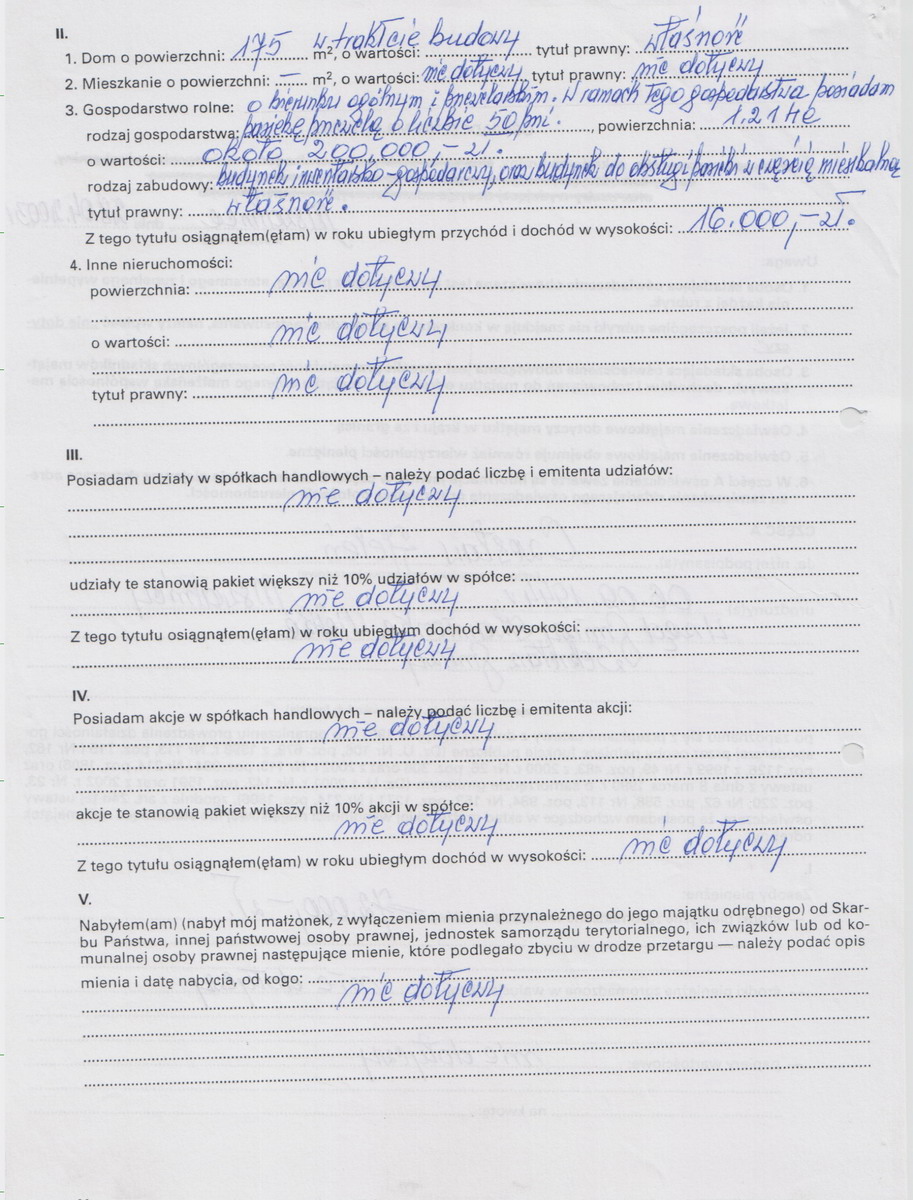 II.
1. Dom o powierzchni: 175 m², o wartości: w trakcie budowy tytuł prawny: własność
2. Mieszkanie o powierzchni: — m², o wartości: nie dotyczy tytuł prawny: nie dotyczy
3. Gospodarstwo rolne: o kierunku ogólnym i pszczelarskim. W ramach tego gospodarstwa posiadam
rodzaj gospodarstwa: pasiekę pszczelą o liczbie 50 pni., powierzchnia: 1.21 ha
o wartości: około 200,000,- zł.
rodzaj zabudowy: budynek gospodarczy, oraz budynek do obsługi pasieki z częścią mieszkalną
tytuł prawny: własność.
Z tego tytułu osiągnąłem(ęłam) w roku ubiegłym przychód i dochód w wysokości: 16.000,- zł.
4. Inne nieruchomości:
powierzchnia: nie dotyczy
o wartości: nie dotyczy
tytuł prawny: nie dotyczy
III.
Posiadam udziały w spółkach handlowych – należy podać liczbę i emitenta udziałów:
nie dotyczy
udziały te stanowią pakiet większy niż 10% udziałów w spółce:
nie dotyczy
Z tego tytułu osiągnąłem(ęłam) w roku ubiegłym dochód w wysokości:
nie dotyczy
IV.
Posiadam akcje w spółkach handlowych – należy podać liczbę i emitenta akcji:
nie dotyczy
akcje te stanowią pakiet większy niż 10% akcji w spółce:
nie dotyczy
Z tego tytułu osiągnąłem(ęłam) w roku ubiegłym dochód w wysokości: nie dotyczy
V.
Nabyłem(am) (nabył mój małżonek, z wyłączeniem mienia przynależnego do jego majątku odrębnego) od Skar-
bu Państwa, innej państwowej osoby prawnej, jednostek samorządu terytorialnego, ich związków lub od ko-
munalnej osoby prawnej następujące mienie, które podlegało zbyciu w drodze przetargu — należy podać opis
mienia i datę nabycia, od kogo:
nie dotyczy